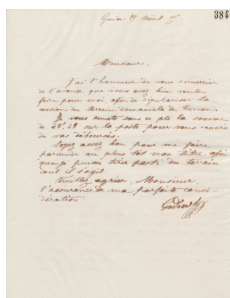 384
Guise, 27 Août 7
Monsieur,
J'ai l'honneur de vous remercier
de l'avance que vous avez bien voulu
faire pour moi afin de régulariser la
cession du terrain domanial de
Je vous envoie sous ce pli la somme
de 23 sur la poste pour vous couvrir
de vos débourses.
Soyez assez bon pour me faire
parvenir au plus tôt mon titre afin
que je puisse tirer parti du terrain
dont il s'agit.
Veuillez agréer, Monsieur,
l'assurance de ma parfaite consi-
dération
Godin